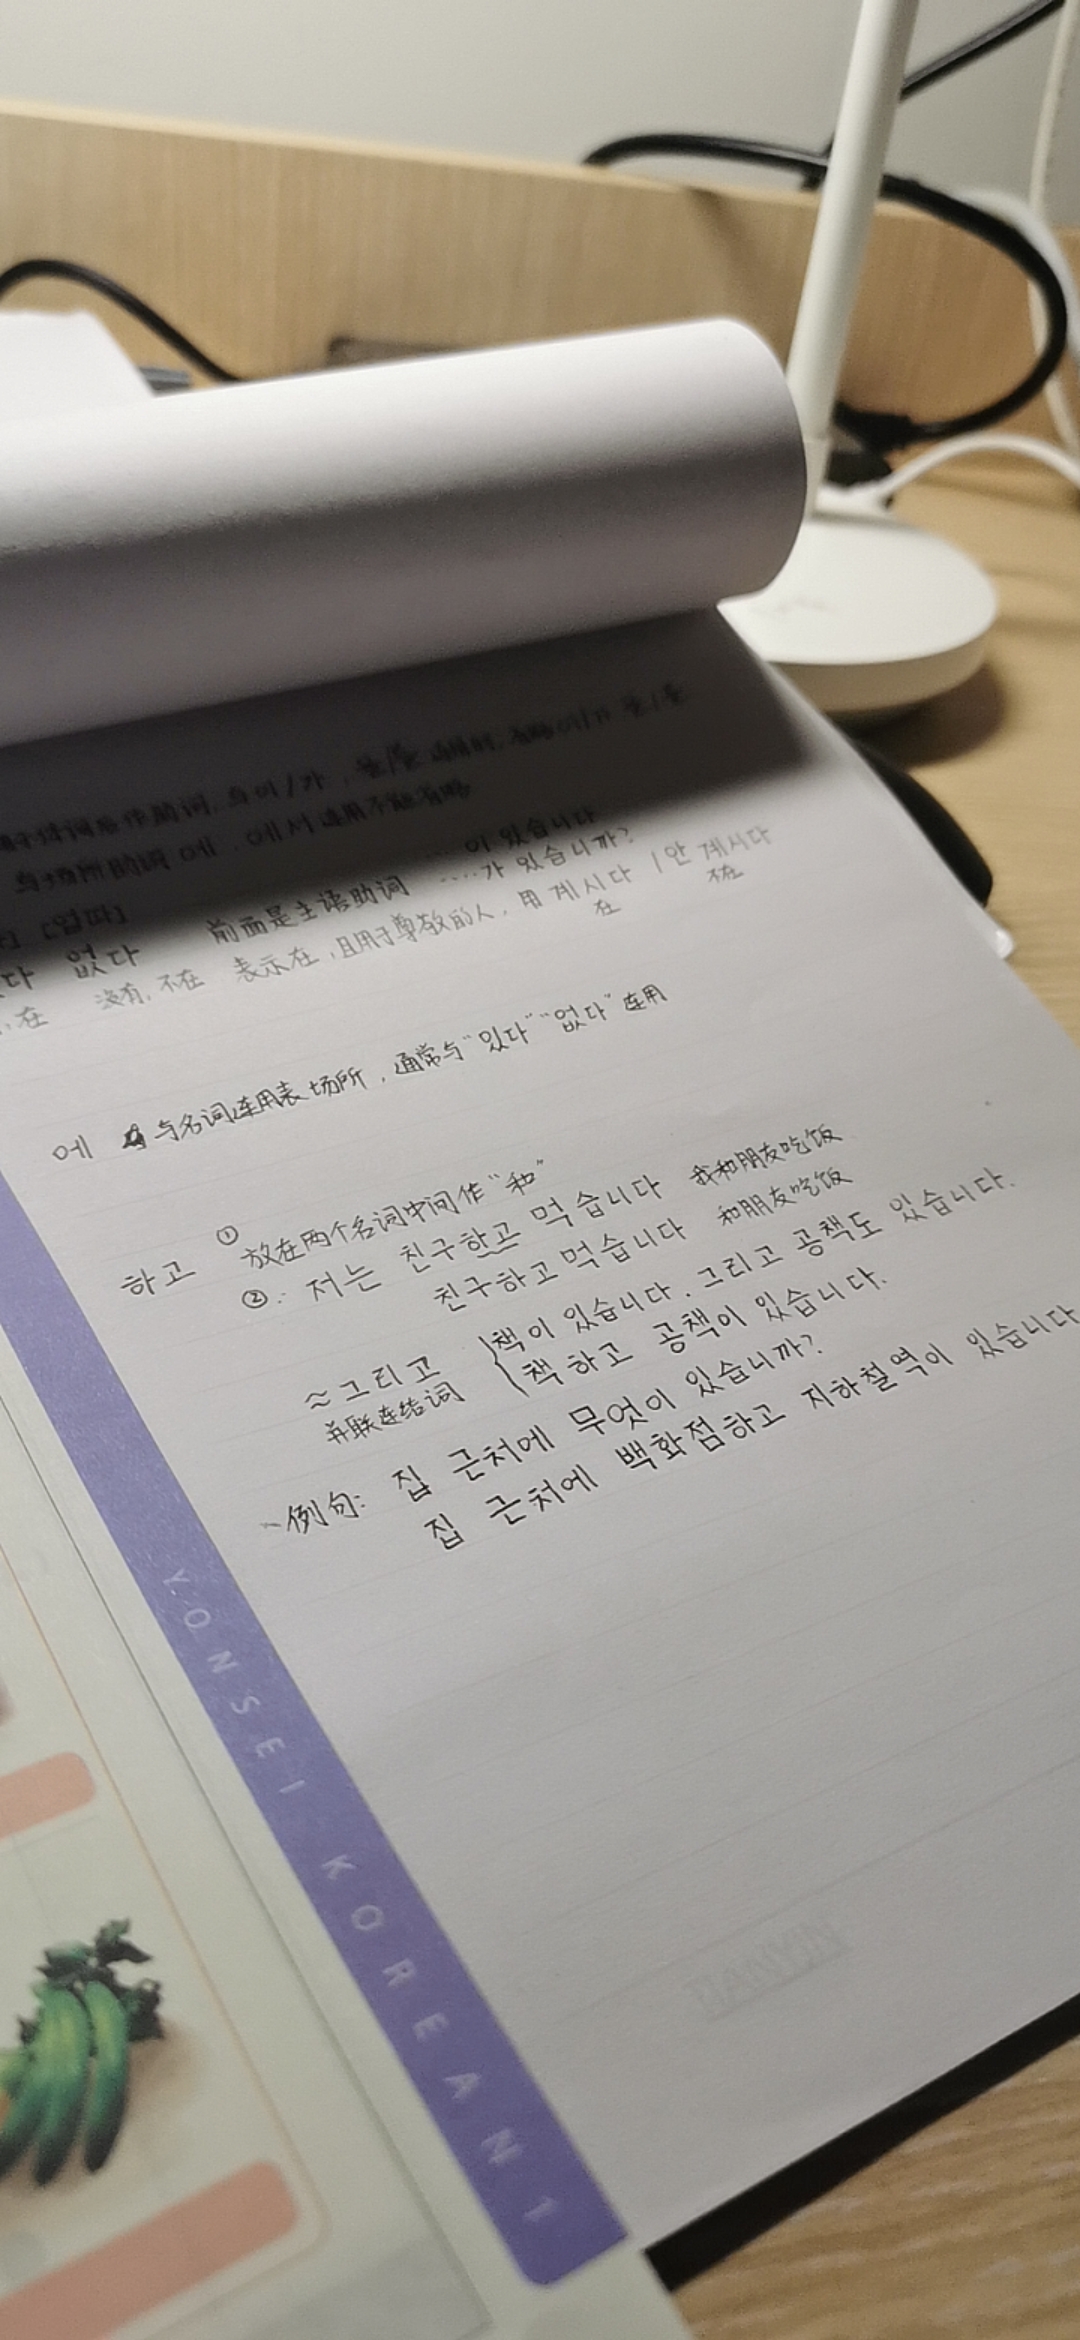 用于体词后作助词, 与이/가, 을/를 连用时, 省略이/가 을/를
与场所助词 에, 에서 连用不能省略
[업따] ....이 있습니다
없다 前面是主语助词 ....가 있습니까?
在 没有, 不在 表示在, 且用于尊敬的人, 用 계시다 / 안 계시다
在 不在
에 与名词连用表场所, 通常与"있다""없다"连用
하고 ① 放在两个名词中间作"和"
②: 저는 친구하고 먹습니다 我和朋友吃饭
친구하고 먹습니다 和朋友吃饭
≈그리고 책이 있습니다. 그리고 공책도 있습니다.
并联连结词 책하고 공책이 있습니다.
例句: 집 근처에 무엇이 있습니까?
집 근처에 백화점하고 지하철역이 있습니다
YONSEI KOREAN 1